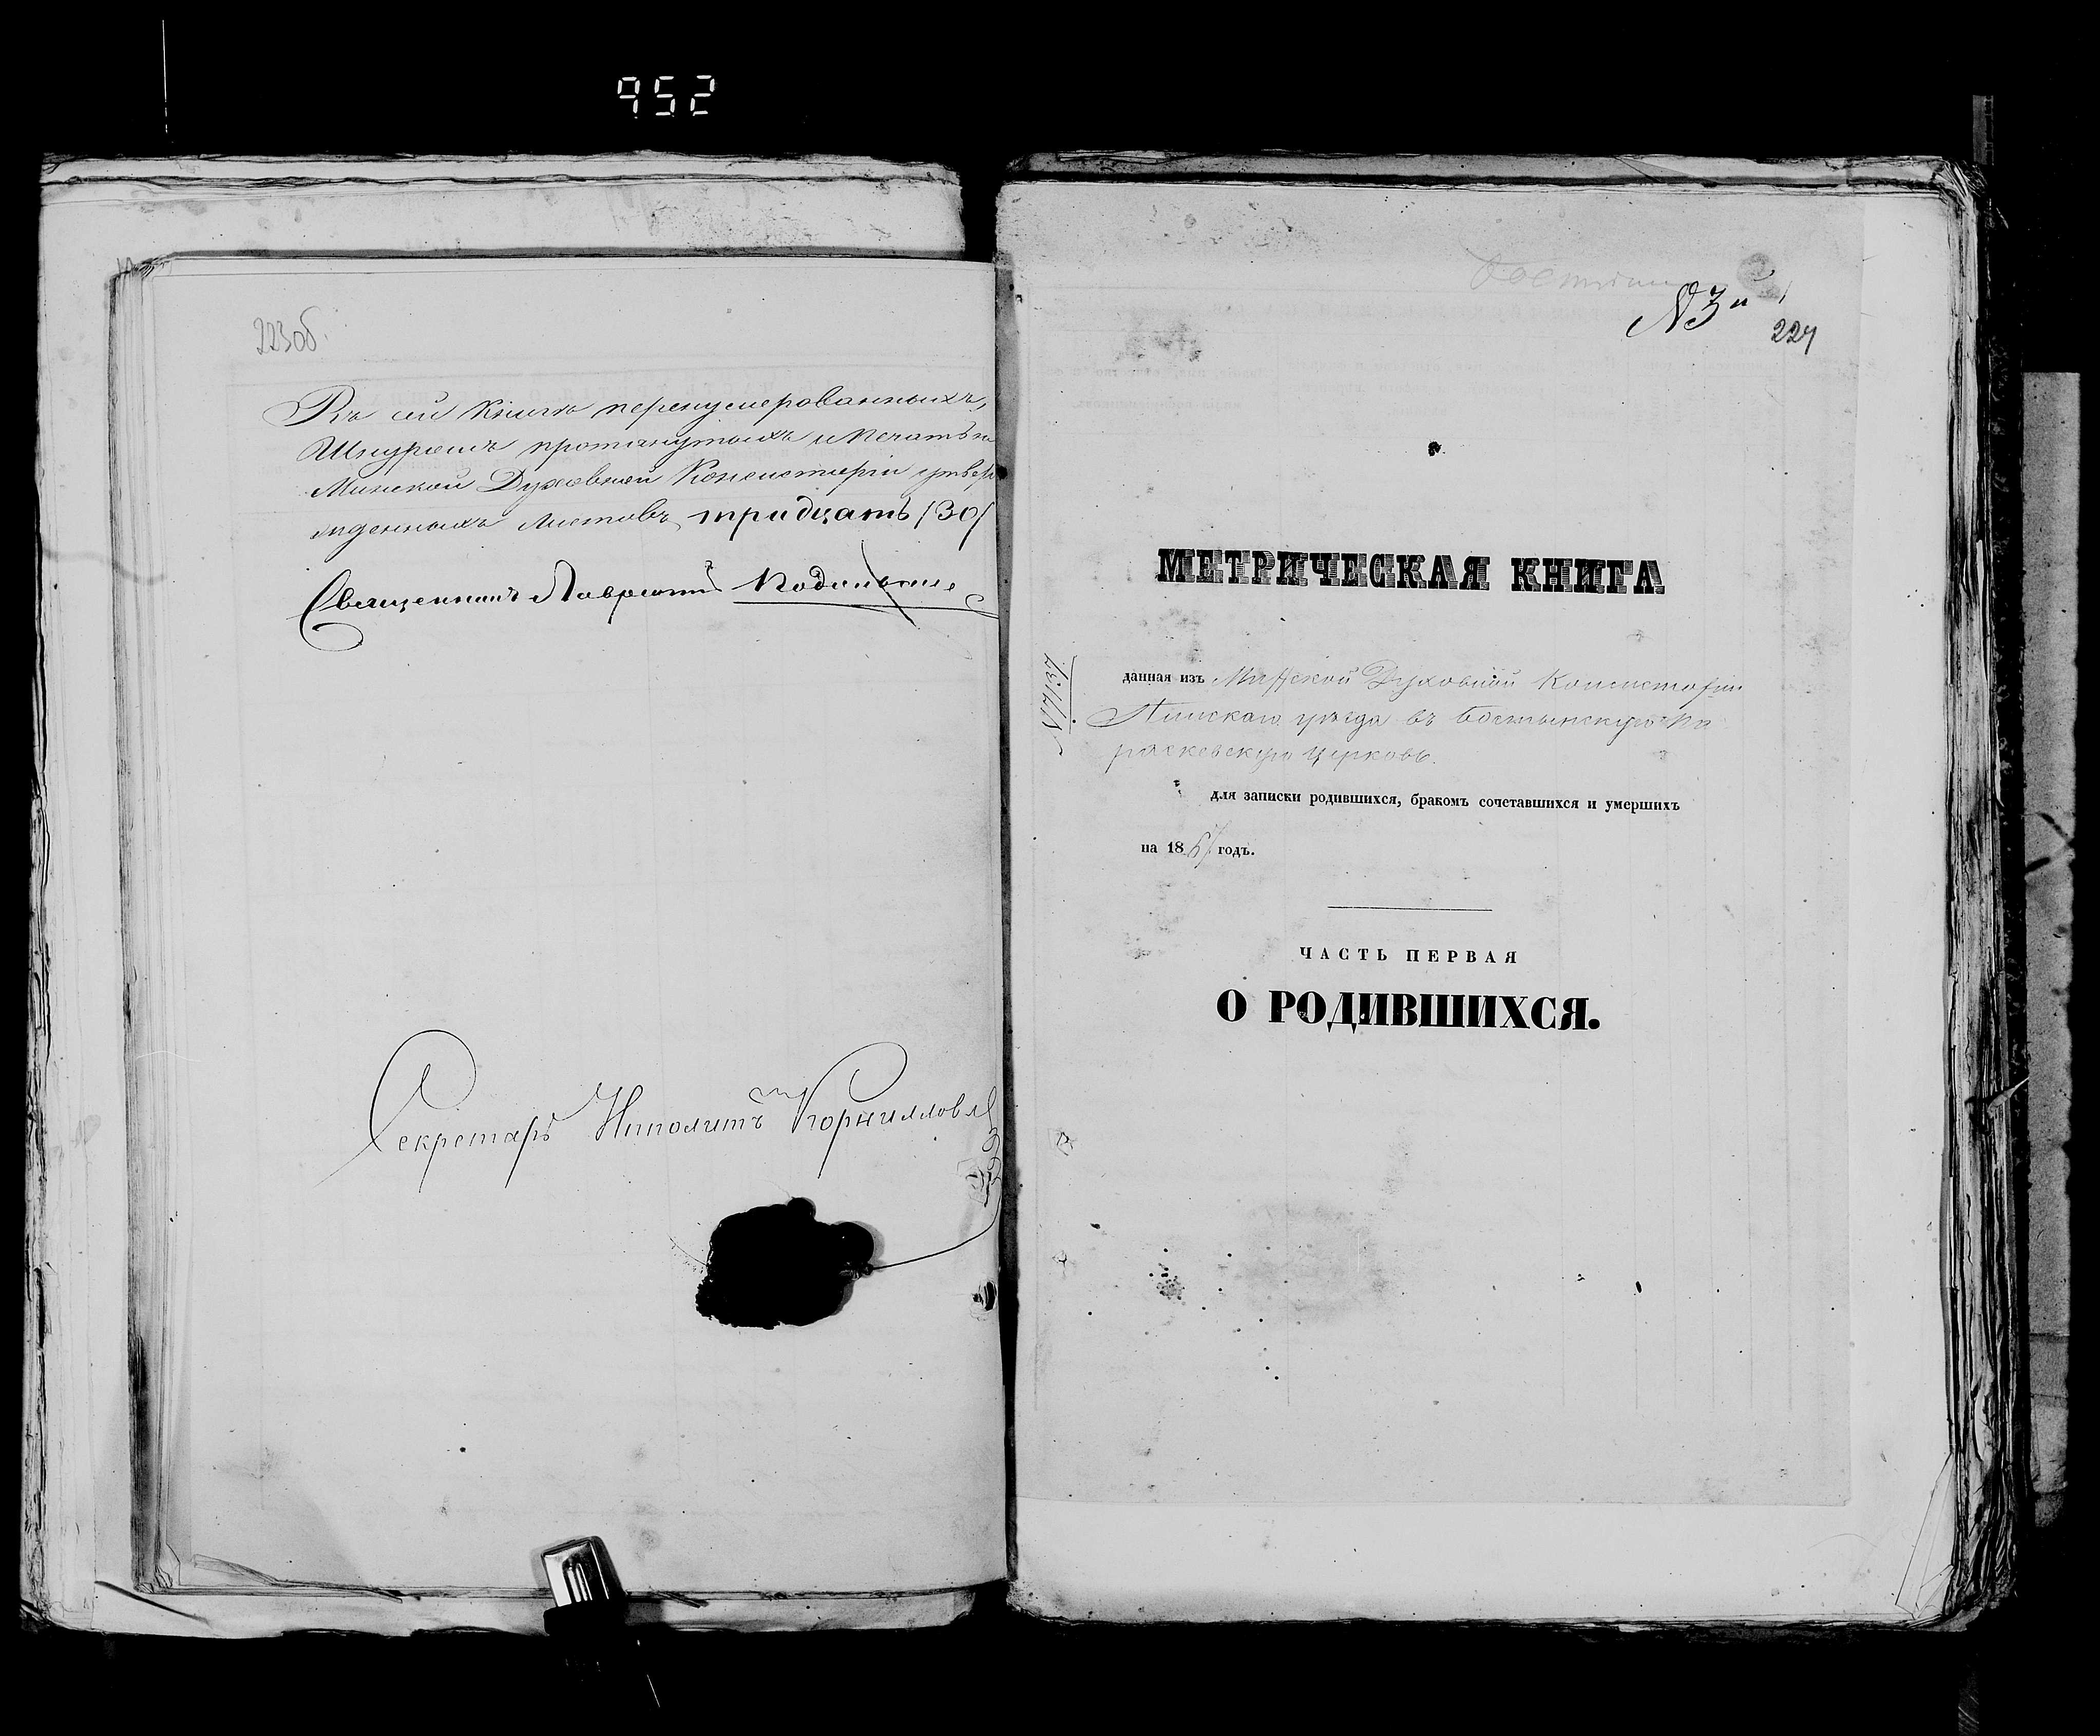 952
223об.
Въ сей книгѣ перенумерованныхъ,
Шнуромъ протянутыхъ и печатью
Минской Духовной Консисторіи утвер
жденныхъ листовъ, тридцать /30/
Священникъ Лаврентій
Секретарь Ипполитъ Корниловъ
N 3й
224
МЕТРИЧЕСКАЯ КНИГА
N 7137
данная изъ Минской Духовной Консисторіи
Пинскаго уѣзда въ Бостынскую Па
раскевскую церковь.
для записки родившихся, бракомъ сочетавшихся и умершихъ
на 18 годъ.
ЧАСТЬ ПЕРВАЯ
О РОДИВШИХСЯ.